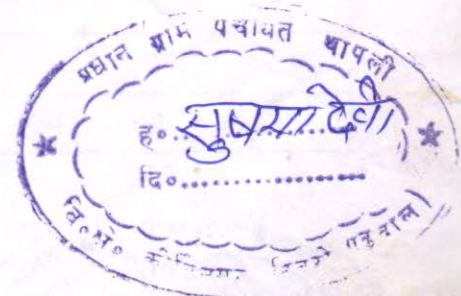 प्रधान ग्राम पंचायत थापली
ह०..सुषमा देवी
दि०..................
वि०क्षे०